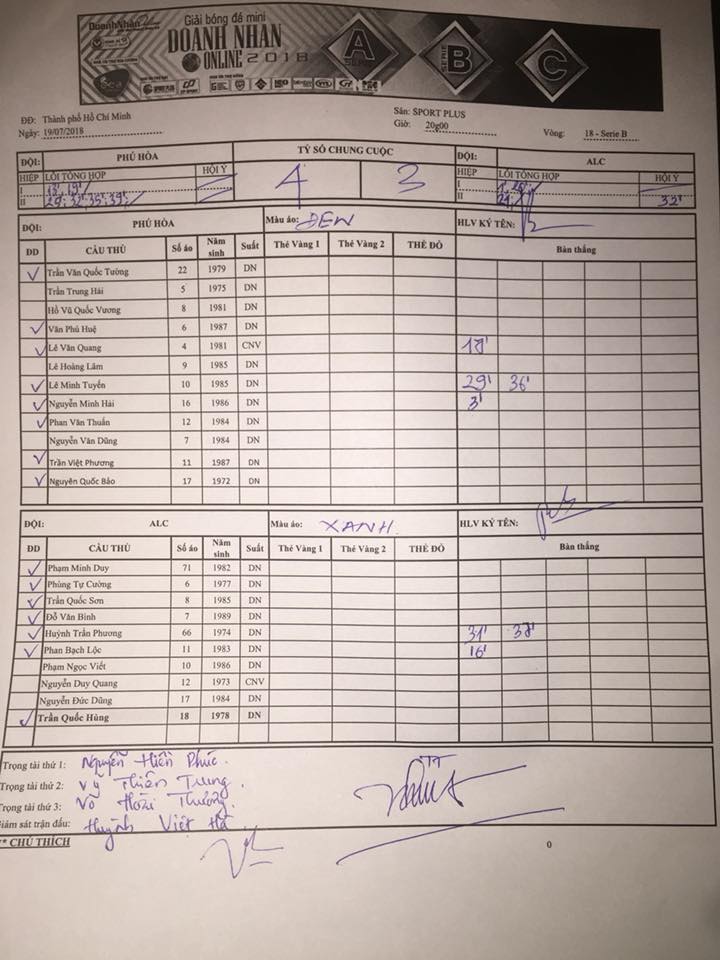 DoanhNhan
Giải bóng đá mini
DOANH NHÂN
ONLINE 2018
A SERIE
SERIE B
C
Sea
ĐĐ: Thành phố Hồ Chí Minh
Sân: SPORT PLUS
Ngày: 19/07/2018
Giờ: 20g00
Vòng: 18 - Serie B
ĐỘI: PHÚ HÒA TỶ SỐ CHUNG CUỘC ĐỘI: ALC
HIỆP LỖI TỔNG HỢP HỘI Ý 4 3 HIỆP LỖI TỔNG HỢP HỘI Ý
I 13', 19' I
II 29', 32', 35', 39' II 32'
ĐỘI: PHÚ HÒA Màu áo: ĐEN HLV KÝ TÊN:
ĐD CẦU THỦ Số áo Năm sinh Suất Thẻ Vàng 1 Thẻ Vàng 2 THẺ ĐỎ Bàn thắng
✓ Trần Văn Quốc Tường 22 1979 DN
Trần Trung Hải 5 1975 DN
Hồ Vũ Quốc Vương 8 1981 DN
✓ Văn Phú Huệ 6 1987 DN
✓ Lê Văn Quang 4 1981 CNV
Lê Hoàng Lâm 9 1985 DN
✓ Lê Minh Tuyến 10 1985 DN 29' 36'
✓ Nguyễn Minh Hải 16 1986 DN 3'
✓ Phan Văn Thuấn 12 1984 DN
Nguyễn Văn Dũng 7 1984 DN
✓ Trần Việt Phương 11 1987 DN
✓ Nguyễn Quốc Bảo 17 1972 DN
ĐỘI: ALC Màu áo: XANH HLV KÝ TÊN:
ĐD CẦU THỦ Số áo Năm sinh Suất Thẻ Vàng 1 Thẻ Vàng 2 THẺ ĐỎ Bàn thắng
✓ Phạm Minh Duy 71 1982 DN
✓ Phùng Tự Cường 6 1977 DN
✓ Trần Quốc Sơn 8 1985 DN
✓ Đỗ Văn Bình 7 1989 DN
✓ Huỳnh Trần Phương 66 1974 DN 31' 38'
✓ Phan Bạch Lộc 11 1983 DN 16'
Phạm Ngọc Viết 10 1986 DN
Nguyễn Duy Quang 12 1973 CNV
Nguyễn Đức Dũng 17 1984 DN
✓ Trần Quốc Hùng 18 1978 DN
Trọng tài thứ 1: Nguyễn Hiền Phúc.
Trọng tài thứ 2: Vỹ Thiên Trung.
Trọng tài thứ 3: Võ Hoài Thương.
Giám sát trận đấu: Huỳnh Việt Hà
** CHÚ THÍCH 0